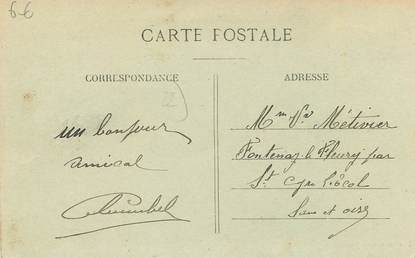 66
CARTE POSTALE
CORRESPONDANCE
ADRESSE
un bonjour
amical
Mme Vve Métivier
Fontenay le Fleury par
St Cyr l'école
Seine et oise